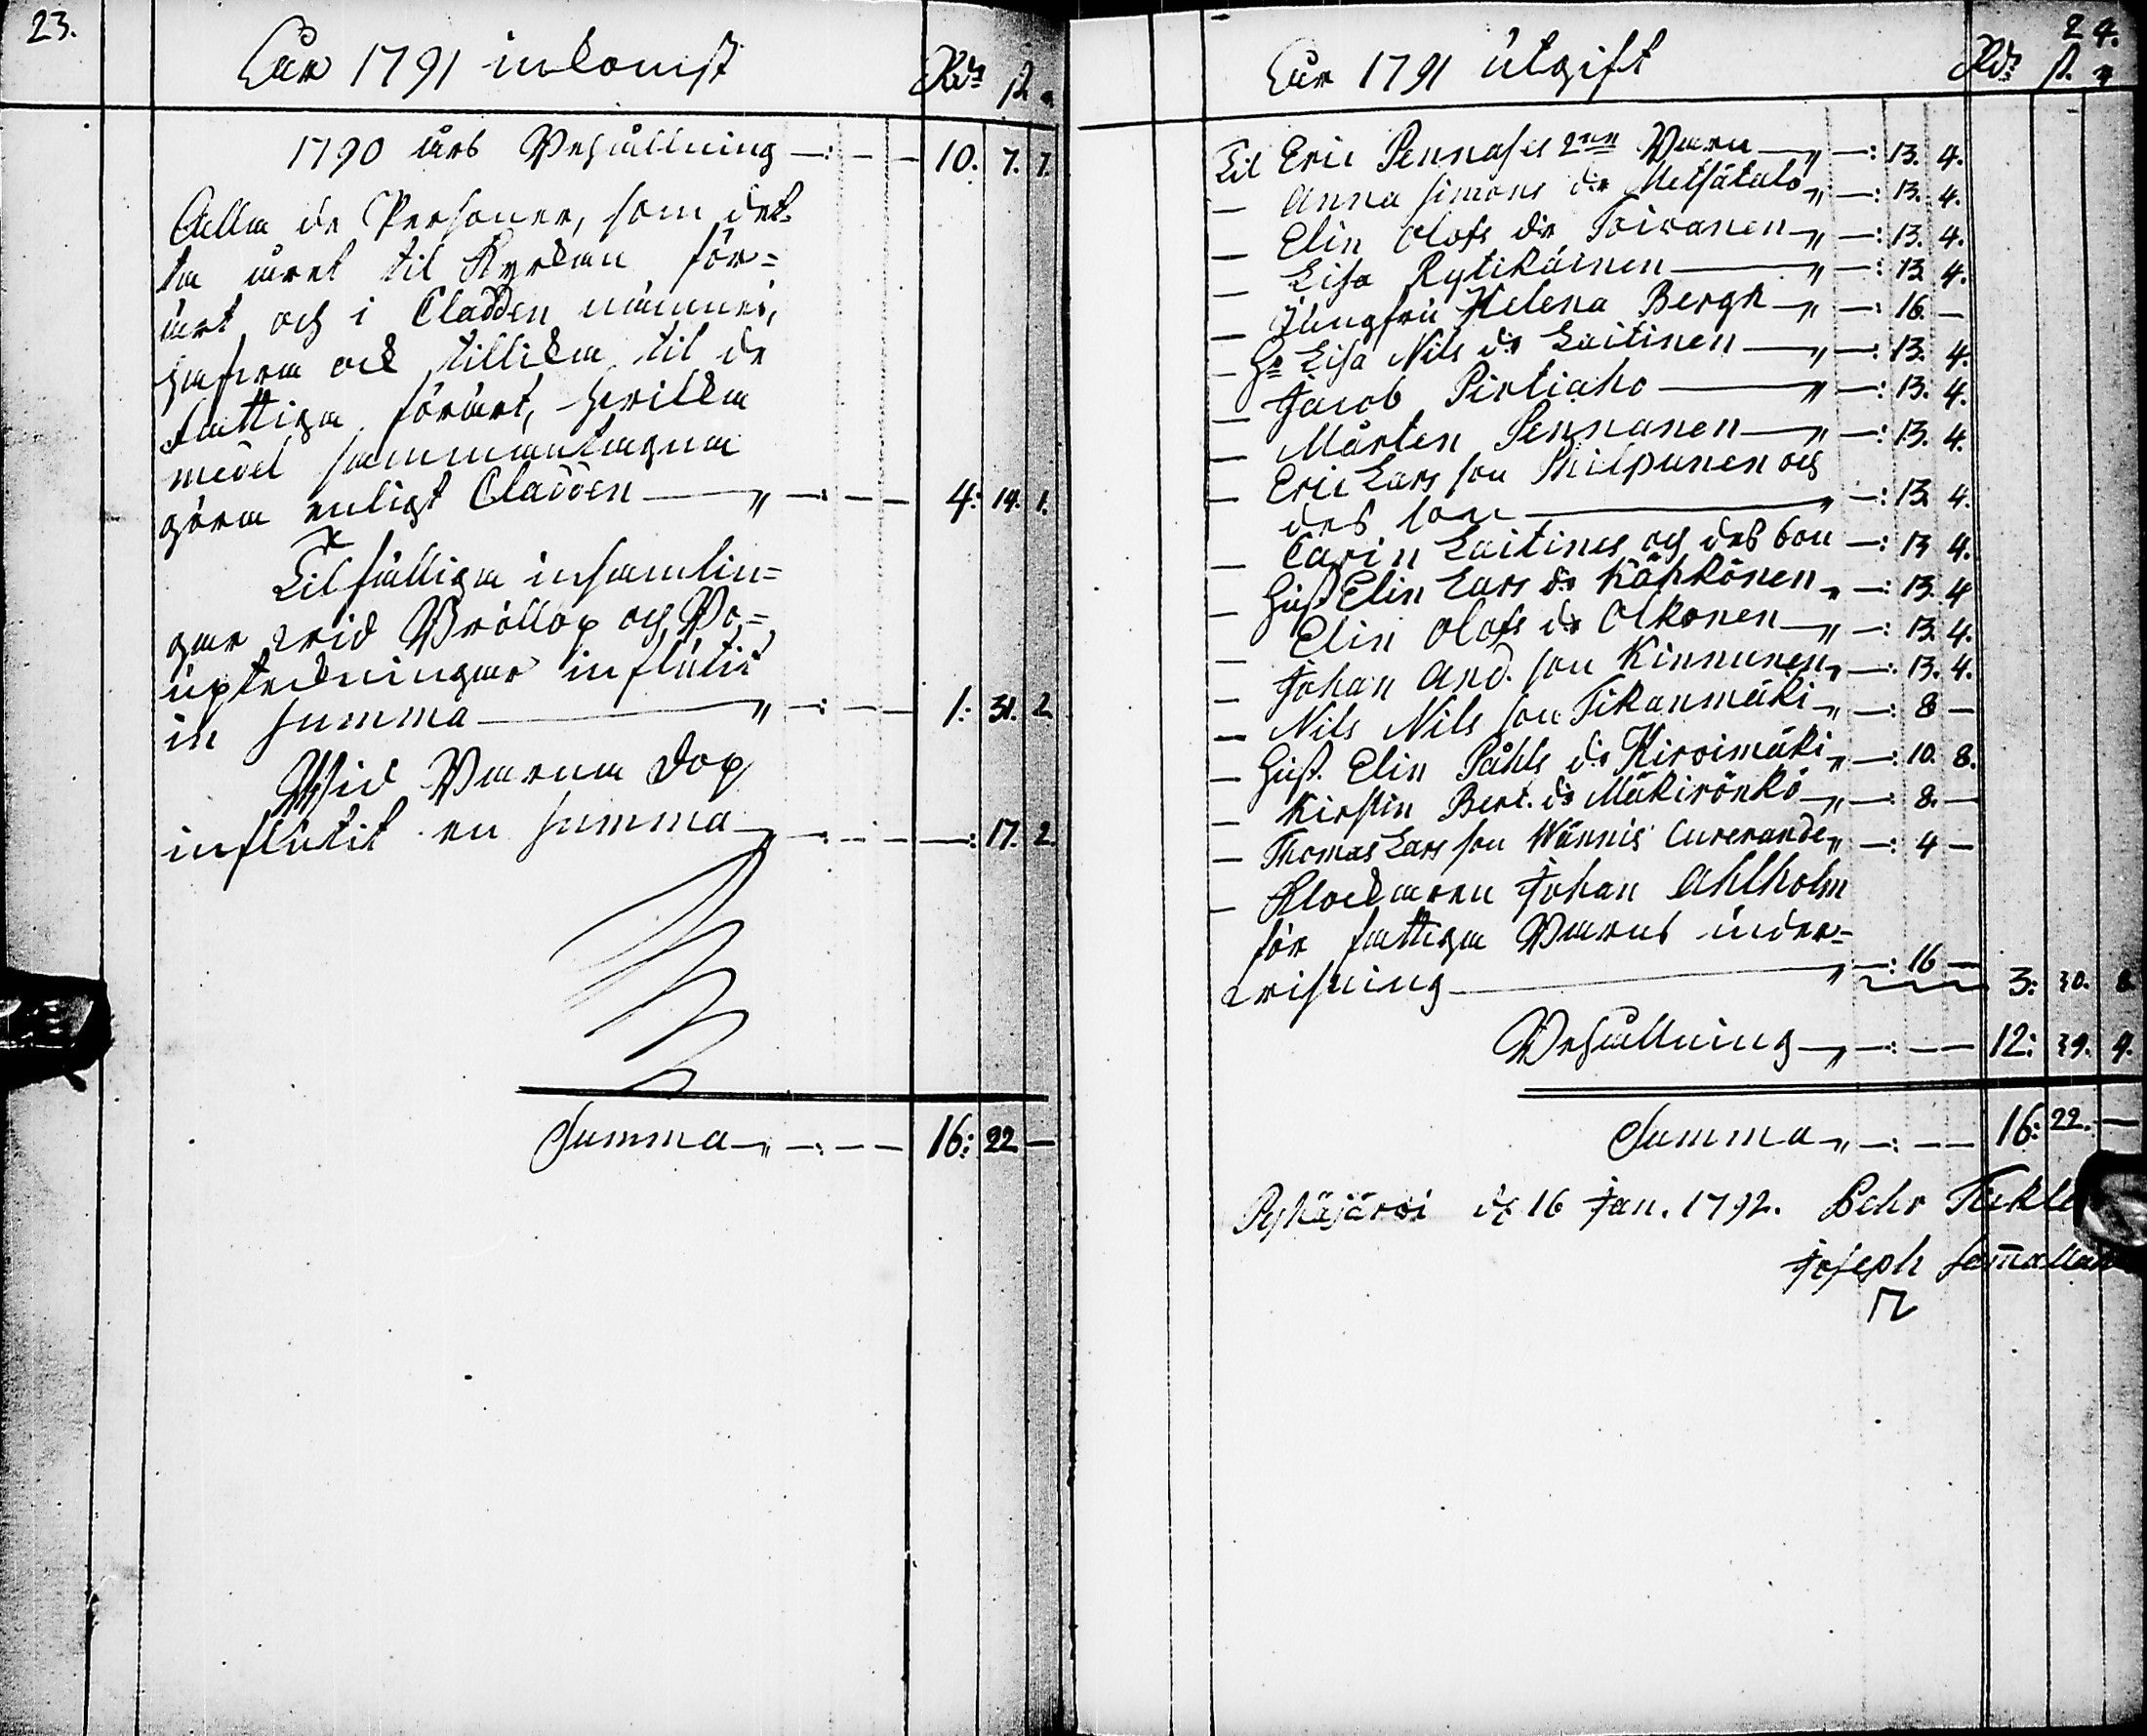 23.
För 1791 inkomst Rdr ß
1790 års Behållning —:— 10. 7. 7.
Alla de Personer, som det-
ta året til Kyrkan för=
ärt och i Cladden nämnes,
hafwa ock tillika til de
fattiga förärt, hwilka
medel sammantagna
göra enligt Cladden — „ —:— 4: 14. 1.
Tilfälliga insamlin=
gar wid Bröllop och Bo=
uptekningar influtit
in summa — „ —:— 1: 31. 2.
Wid Barna dop
influtit en summa „ —:— —: 17. 2.
Summa „ —:— 16: 22 —
24.
För 1791 utgift Rdr ß.
Til Eric Pennases 2ne Barn „ —: 13. 4.
— Anna Simons dr Metsätalo „ —: 13. 4.
— Elin Olofs dr Toivanen „ —: 13. 4.
— Lisa Rytikäinen „ —: 13. 4.
— Jungfru Helena Bergh „ —: 16. —
— Hu Lisa Nils dr Laitinen „ —: 13. 4.
— Jacob Pirtiaho „ —: 13. 4.
— Mårten Pennanen „ —: 13. 4.
— Eric Lars son Philpunen och
des son „ —: 13 4.
— Carin Laitines och des son —: 13 4.
— Hust Elin Lars dr Käpkönen „ —: 13. 4
— Elin Olofs dr Olkonen „ —: 13. 4.
— Johan And. son Kinnunen „ —: 13. 4.
— Nils Nils son Tikanmäki „ —: 8 —
— Hust. Elin Påhls dr Hirvimäki „ —: 10. 8.
— Kirstin Bert. dr Mäkirönkö „ —: 8. —
— Thomas Lars son Wännis Curerande „ —: 4 —
— Klockaren Johan Ahlholm
för fattiga Barns under=
wisning „ —: 16 — 3: 30. 8.
Behållning „ —:— 12: 39. 4.
Summa „ —:— 16: 22. —
Pyhäjärvi d. 16 Jan. 1792. Pehr
Joseph